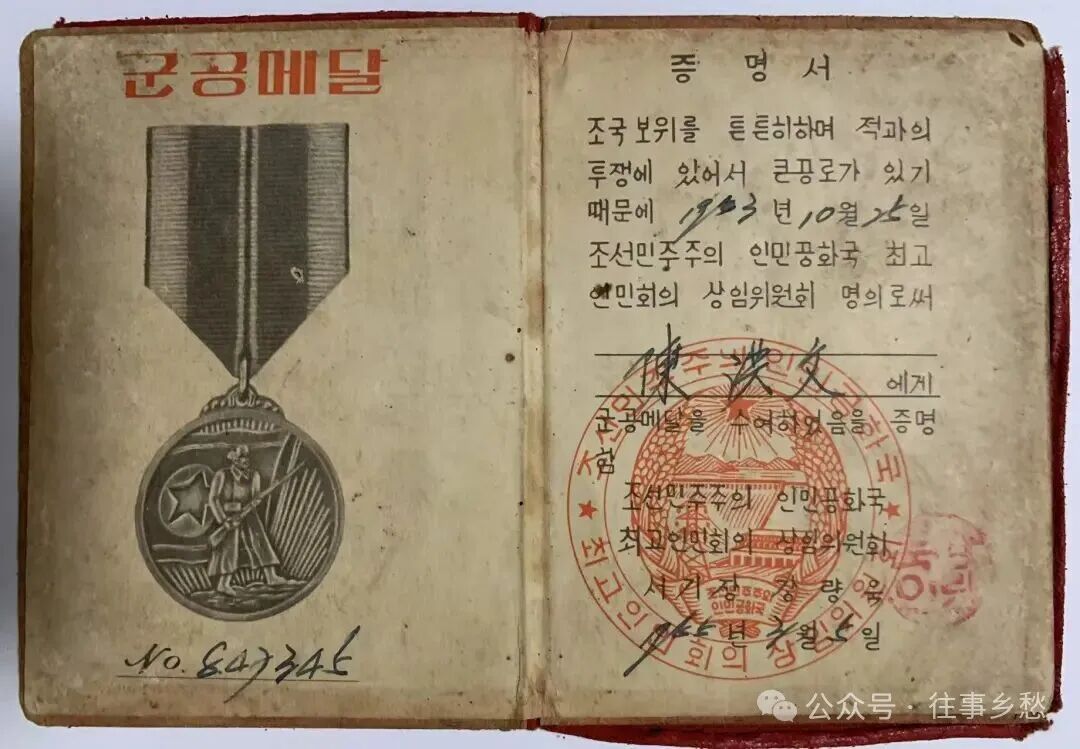 군공메달
No. 847345
증명서
조국보위를 튼튼히하며 적과의
투쟁에 있어서 큰공로가 있기
때문에 1953 년 10 월 25 일
조선민주주의 인민공화국 최고
인민회의 상임위원회 명의로써
陳洪文 에게
군공메달을 수여하였음을 증명
함
조선민주주의 인민공화국
최고인민회의 상임위원회
서기장 강량욱
1955 년 월 5 일
조선민주주의인민공화국
최고인민회의 상임위원회
인민공화국
公众号·往事乡愁